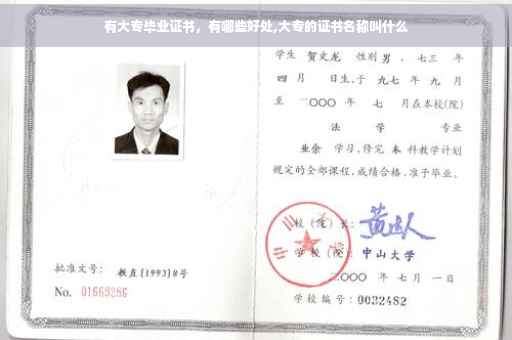 有大专毕业证书，有哪些好处,大专的证书名称叫什么
学生 贺文龙 性别 男 ，七三 年
四 月 日生,于 九七 年 九 月
至 二〇〇〇 年 七 月在本校(院)
法 学 专业
业余 学习,修完 本 科教学计划
规定的全部课程,成绩合格,准予毕业。
校 (院) 长:
学 校 (院): 中山大学
二〇〇〇 年 七 月 一 日
批准文号: 教直[1993]8号
No. 01669286
学校编号: 0032482